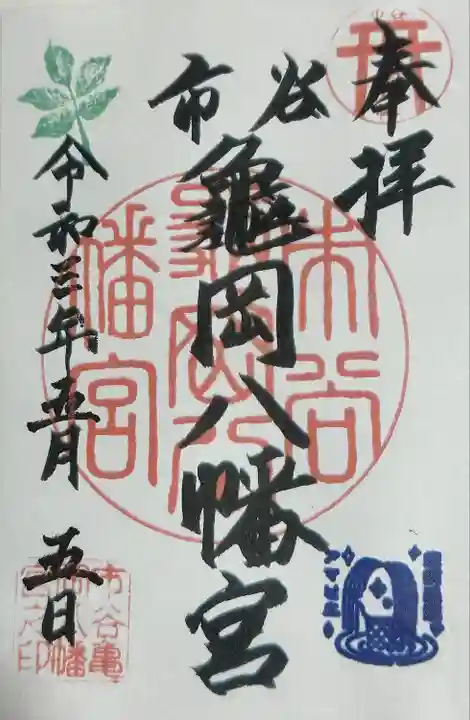 奉拝
市谷
龜岡八幡宮
令和三年五月五日
市谷
龜岡八
幡宮
市谷亀
岡八幡
宮之印